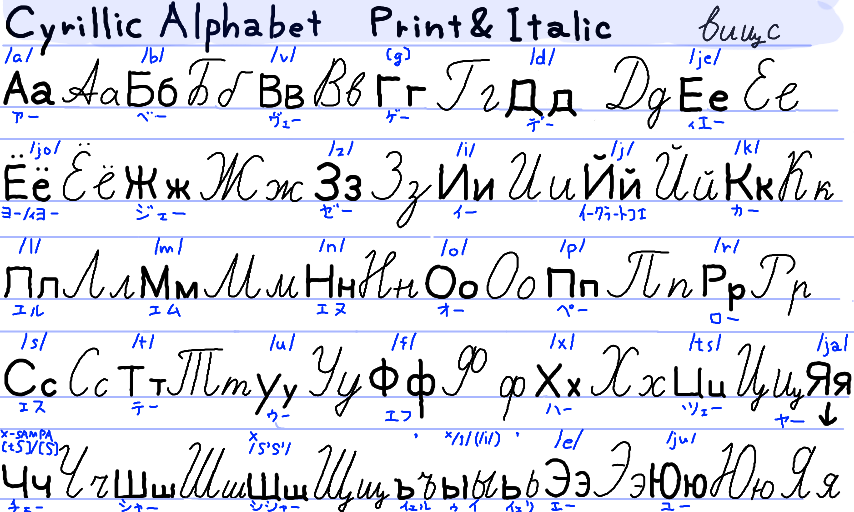 Cyrillic Alphabet Print & Italic вищс
/a/ /b/ /v/ [g] /d/ /je/
Аа Аа Бб Бб Вв Вв Гг Гг Дд Дд Ее Ее
アー ベー ヴェー ゲー デー ィエー
/jo/ /z/ /i/ /j/ /k/
Ёё Ёё Жж Жж Зз Зз Ии Ии Йй Йй Кк Кк
ヨー/ィヨー ジェー ゼー イー カー
/l/ /m/ /n/ /o/ /p/ /r/
Лл Лл Мм Мм Нн Нн Оо Оо Пп Пп Рр Рр
エル エム エヌ オー ペー ロー
/s/ /t/ /u/ /f/ /x/ /ts/ /ja/
Сс Сс Тт Тт Уу Уу Фф Фф Хх Хх Цц Цц Яя
エス テー ウー エフ ハー ツェー ヤー ↓
X-SAMPA
[tS]/[S] /S'S'/ /1/(/i/) /e/ /ju/
Чч Чч Шш Шш Щщ Щщ ъъ ыы ьь Ээ Ээ Юю Юю Яя
チェー シャー シシャー エー ユー